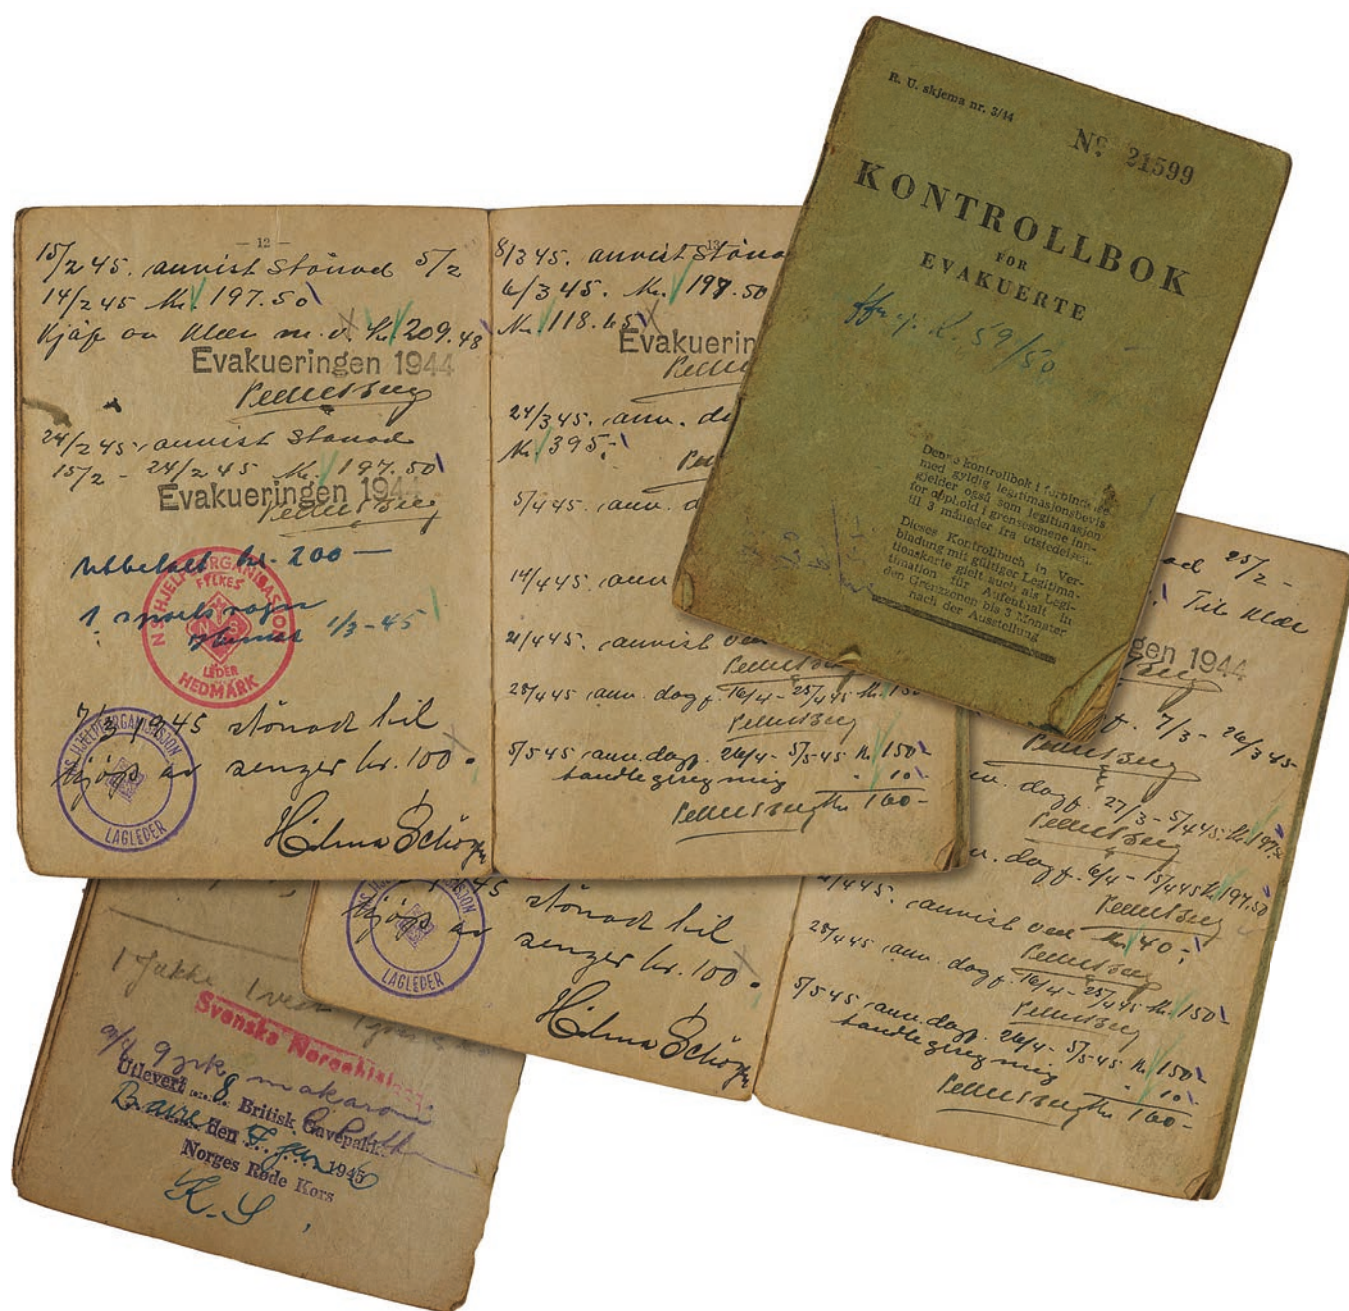 R. U. skjema nr. 3/44
Nº 21599
KONTROLLBOK
FOR
EVAKUERTE
59/50
Denne kontrollbok i forbindelse
med gyldig legitimasjonsbevis
gjelder også som legitimasjon
for opphold i grensesonene inn-
til 3 måneder fra utstedelsen.
Dieses Kontrollbuch in Ver-
bindung mit gültiger Legitima-
tionskarte gielt auch als Legi-
timation für Aufenthalt in
den Grenzzonen bis 3 Monater
nach der Ausstellung
— 12 —
15/2 45. anvist stönad 5/2
14/2 45 Kr. 197.50
Kjöp av klær m.v. Kr. 209.48
Evakueringen 1944
24/2 45. anvist stönad
15/2 - 24/2 45 Kr. 197.50
Evakueringen 1944
Utbetalt kr. 200 —
1/3-45
NS HJELPEORGANISASJON
FYLKES
LEDER
HEDMARK
7/3 1945 stönad til
kjöps av senger kr. 100.
NS HJELPEORGANISASJON
LAGLEDER
Hilma
13
8/3 45. anvist stöna
6/3 45. Kr. 197.50
Kr. 118.65
Evakuerin
24/3 45. anv. d
Kr. 395.-
5/4 45. anv. d
14/4 45. ann
21/4 45. anvist ve
25/4 45 anv. dagp. 16/4 - 25/4 45 Kr. 150-
5/5 45 anv. dagp. 26/4 - 5/5-45 Kr. 150-
10.-
Kr. 160-
ad 25/2 -
Til klær
gen 1944
7/3 - 26/3 45-
v. dagp. 27/3 - 5/4 45. Kr. 197.50
v. dagp. 6/4 - 15/4 45 Kr. 197.50
21/4 45. anvist ved Kr. 40.-
25/4 45 anv. dagp. 16/4 - 25/4 45 Kr. 150-
5/5 45 anv. dagp. 26/4 - 5/5-45 Kr. 150-
10.-
Kr. 160-
45 stönad til
kjöps av senger kr. 100.
ORGANISASJON
LAGLEDER
Hilma
1 Jakke 1 vest
Svenska Norgehjälpen
makaroni
Utlevert 8 Britisk Gavepakke
den 7 jan 1945
Norges Røde Kors
K. S.